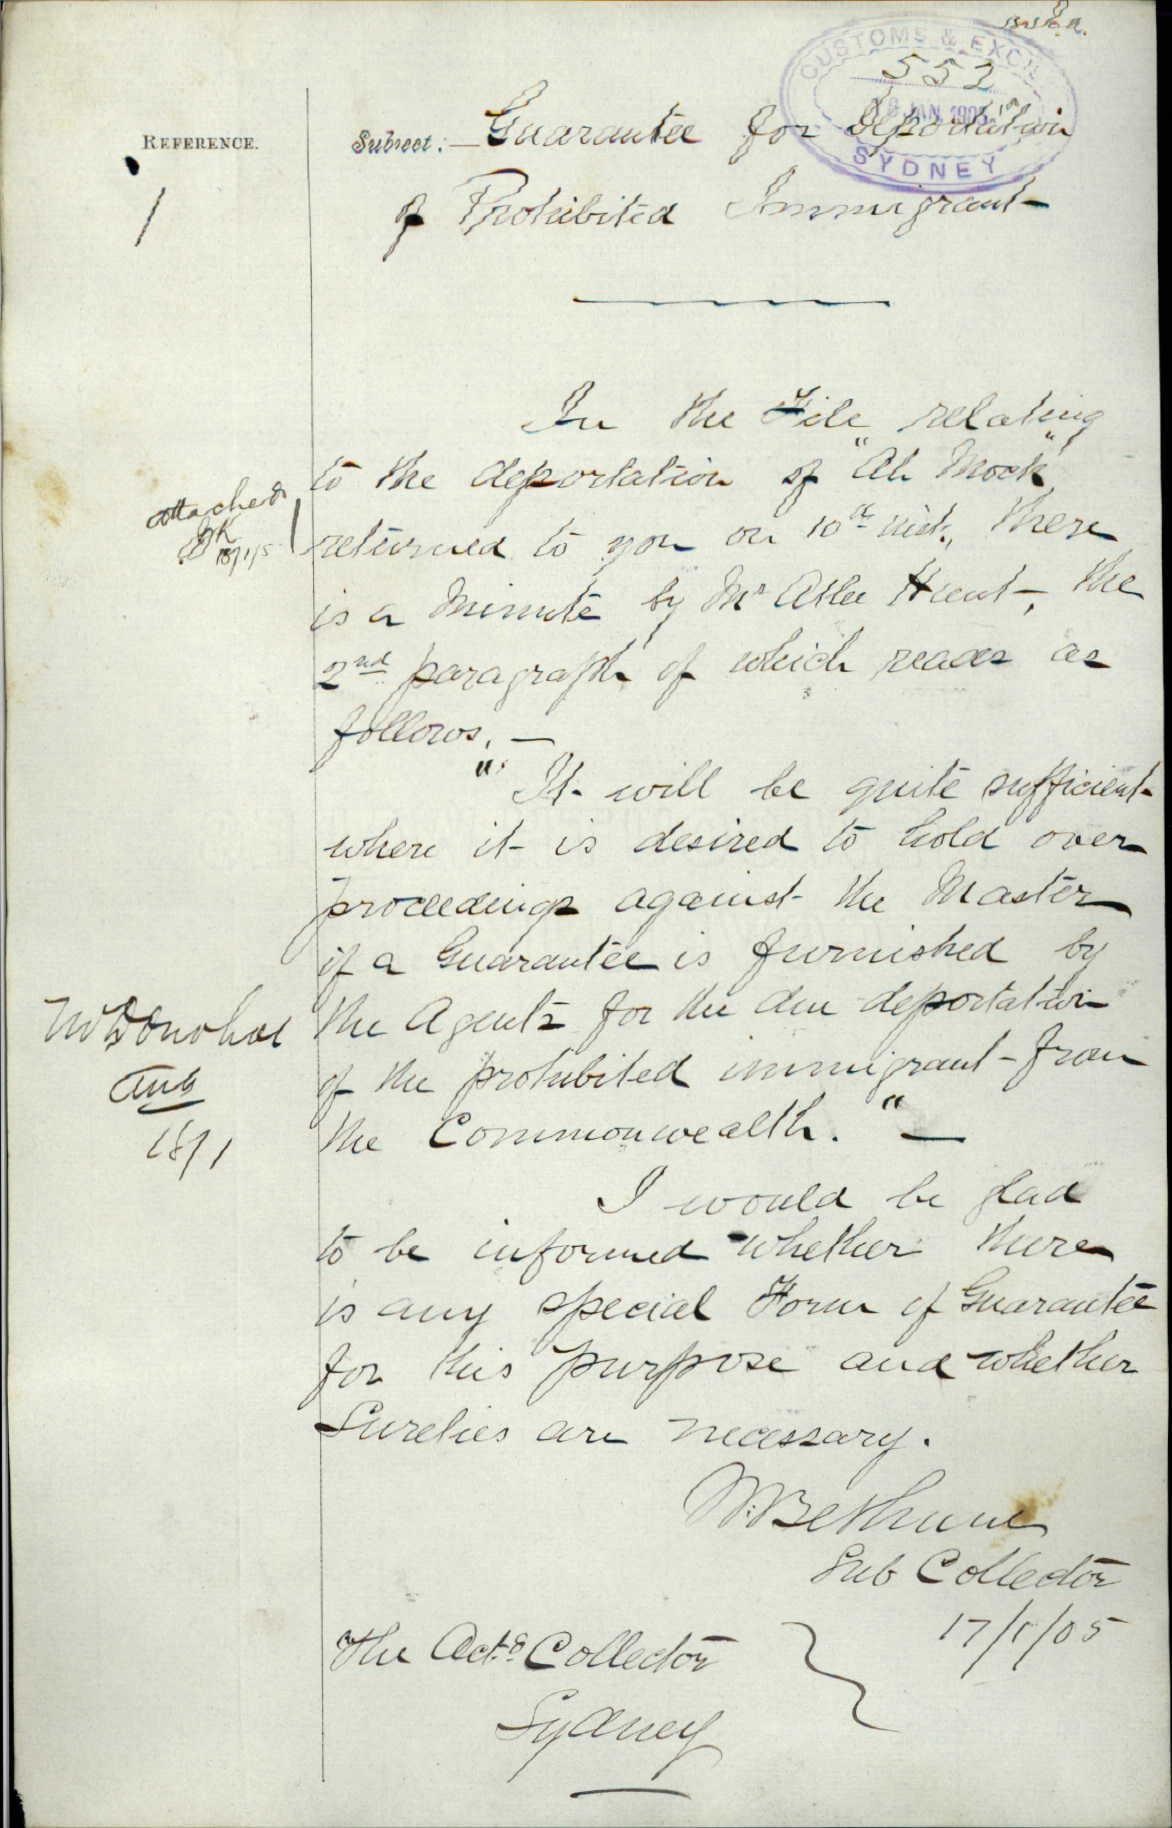 CUSTOMS & EXCISE
552
JAN 1905
SYDNEY
REFERENCE.
1
Subject:— Guarantee for Deportation
of Prohibited Immigrant
In the File relating
to the deportation of "Ah Mook",
attached
returned to you on 10th inst., there
18/1/5
is a Minute by Mr Atlee Hunt, the
2nd paragraph of which reads as
follows. —
"It will be quite sufficient
where it is desired to hold over
proceedings against the Master
if a Guarantee is furnished by
the Agents for the due deportation
of the prohibited immigrant from
the Commonwealth." —
Mr Donohoe
18/1
I would be glad
to be informed whether there
is any special Form of Guarantee
for this purpose and whether
Sureties are necessary.
Bethune
Sub Collector
17/1/05
The Actg Collector
Sydney